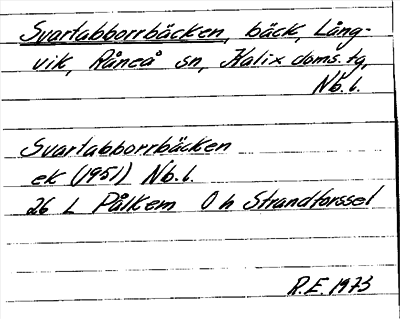 Svartabborrbäcken, bäck, Lång-
vik, Råneå sn, Kalix doms. tg,
Nb. l.
Svartabborrbäcken
ek (1951) Nb. l.
26 L Pålkem O h Strandforssel
R.E. 1973